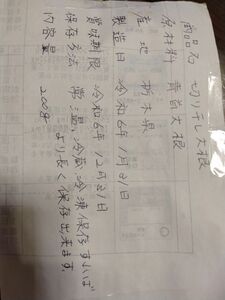 商品名 切り干し大根
原材料 青首大根
産地 栃木県
製造日 冷和6年1月21日
賞味期限 冷和6年12月21日
保存方法 常温、冷蔵、冷凍保存すれば
より長く保存出来ます。
内容量 200g